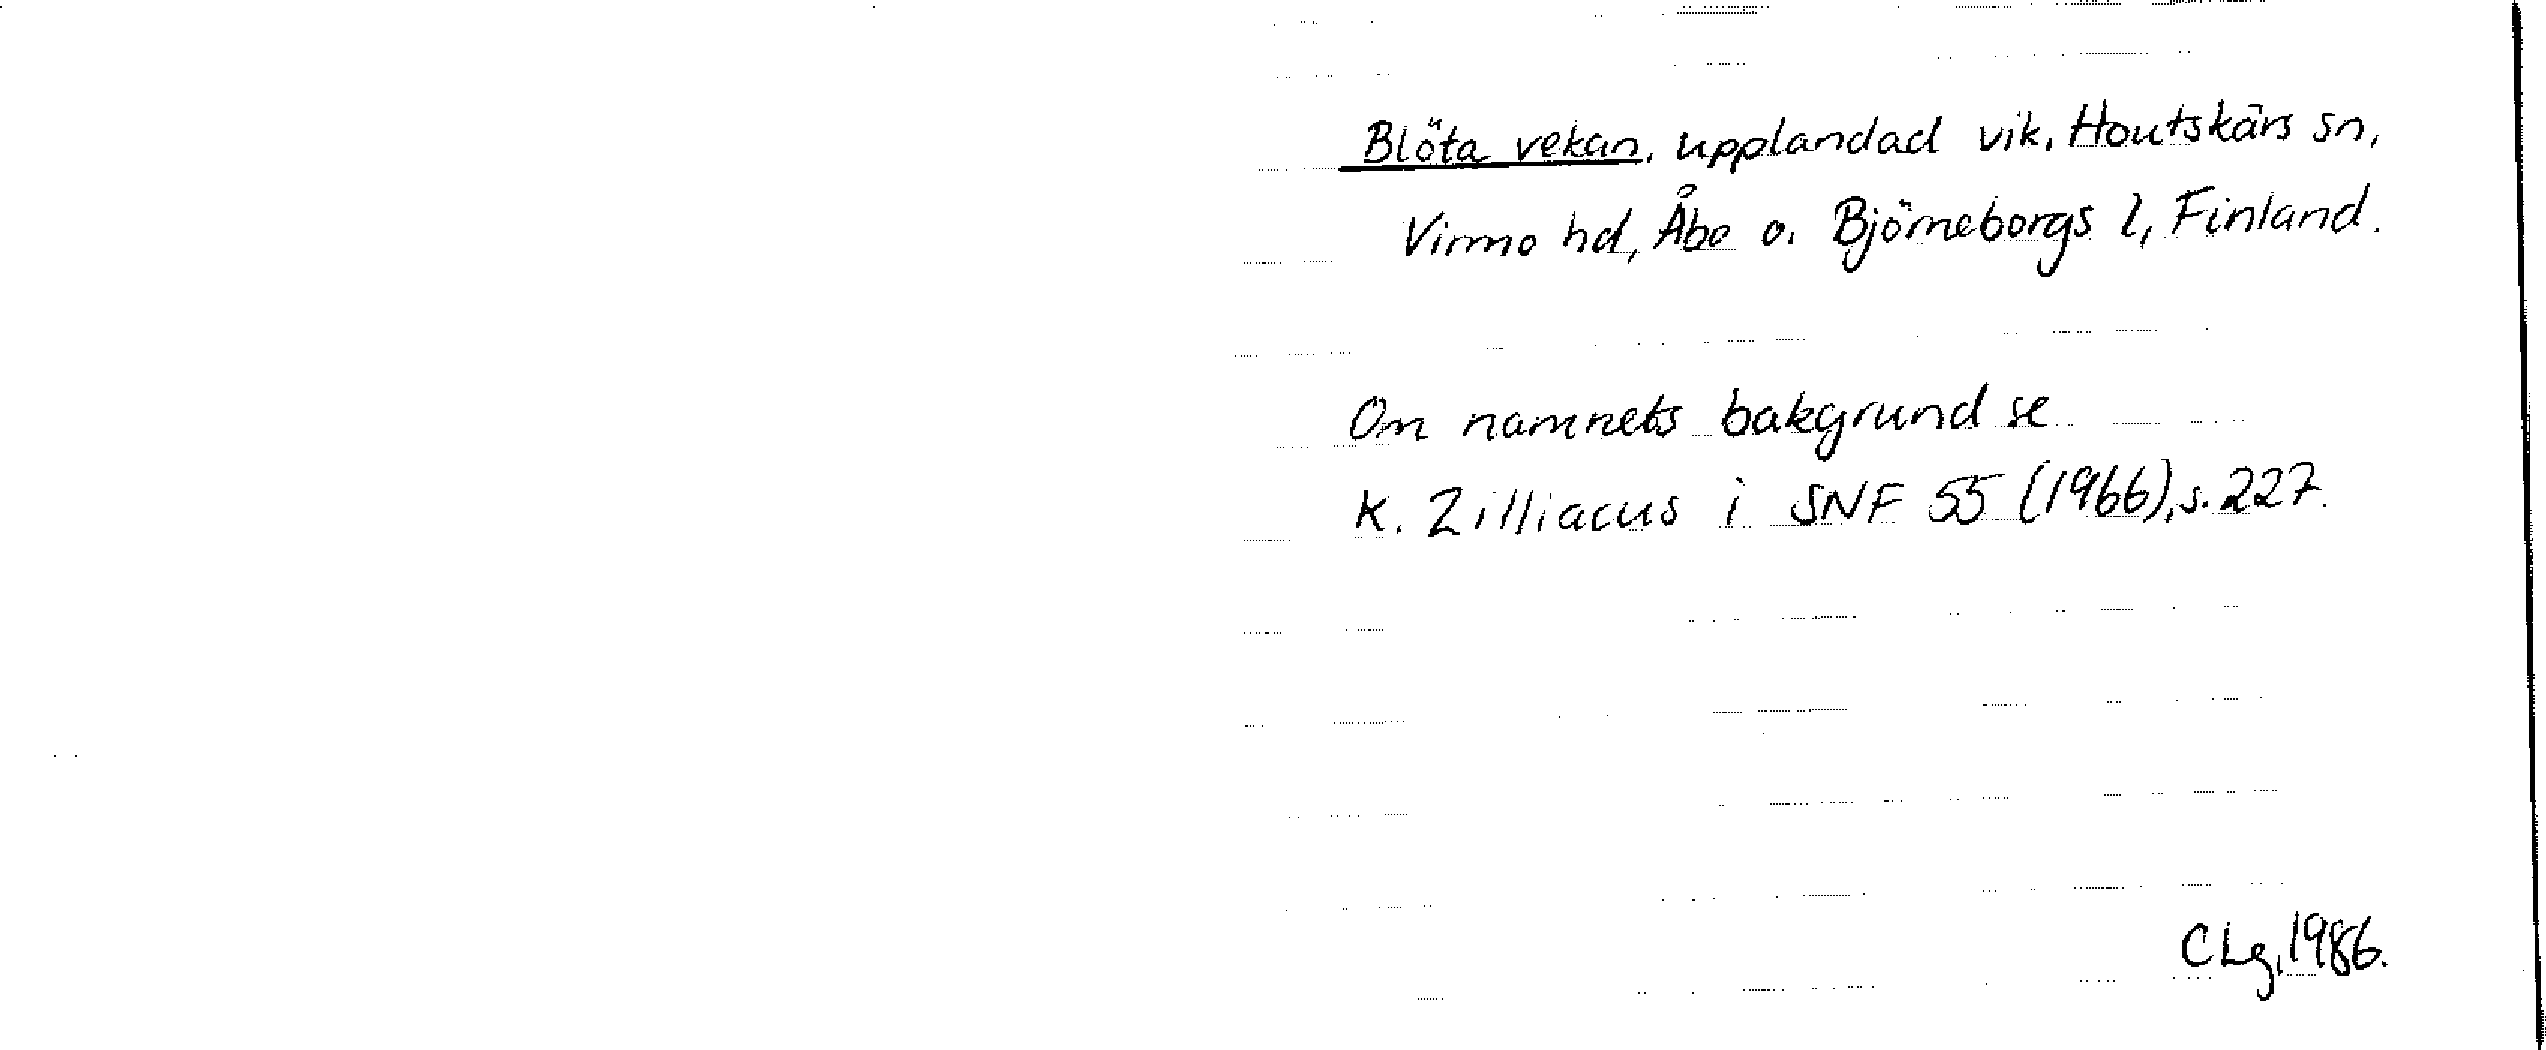 Blöta vekan, upplandad vik, Houtskärs sn,
Virmo hd, Åbo o. Björneborgs l, Finland.
Om namnets bakgrund se
K. Zilliacus i SNF 55 (1966), s. 227.
CLg, 1986.